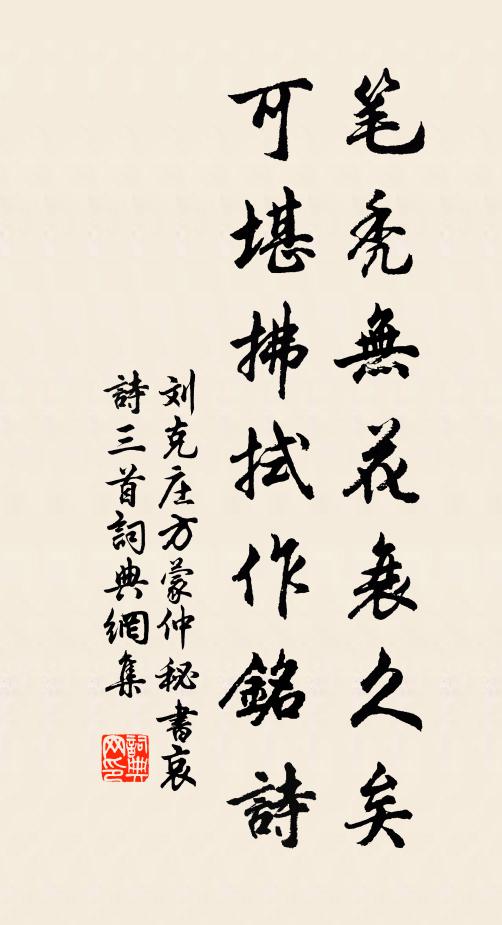 笔秃無花衰久矣
可堪拂拭作銘詩
刘克庄方蒙仲秘書哀
詩三首詞典網集
詞典網印